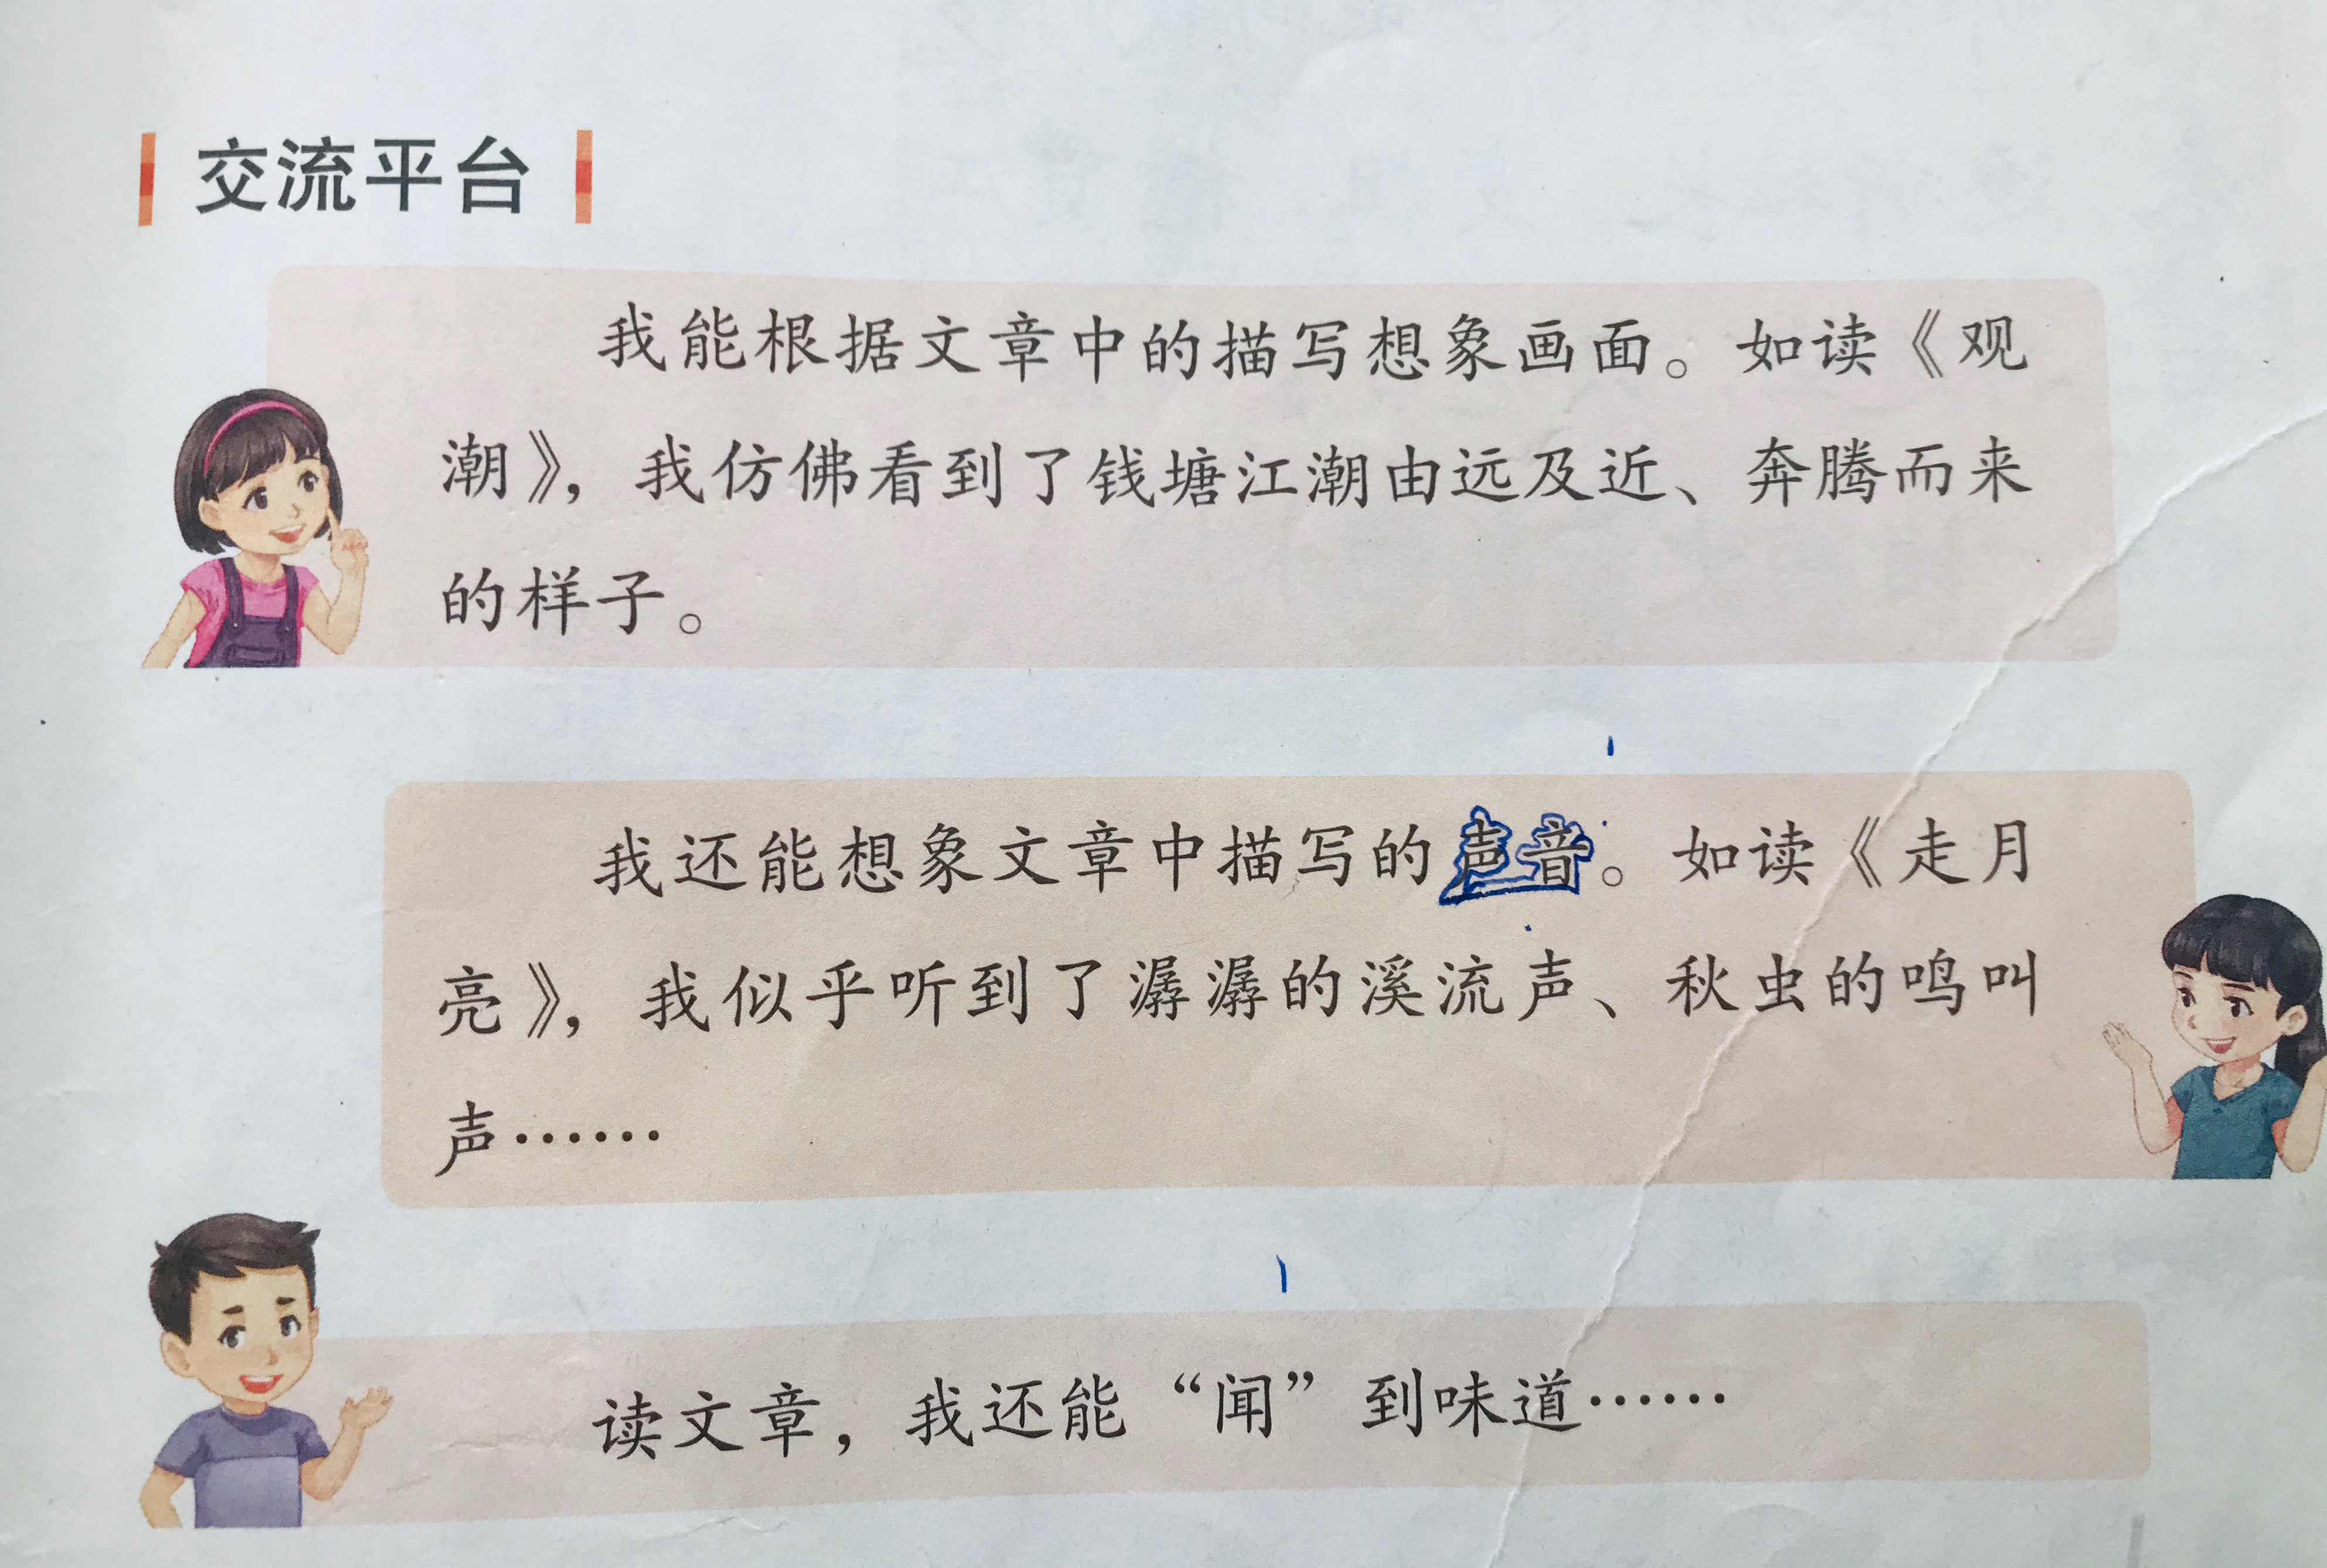 交流平台
我能根据文章中的描写想象画面。如读《观
潮》，我仿佛看到了钱塘江潮由远及近、奔腾而来
的样子。
我还能想象文章中描写的声音。如读《走月
亮》，我似乎听到了潺潺的溪流声、秋虫的鸣叫
声……
读文章，我还能“闻”到味道……